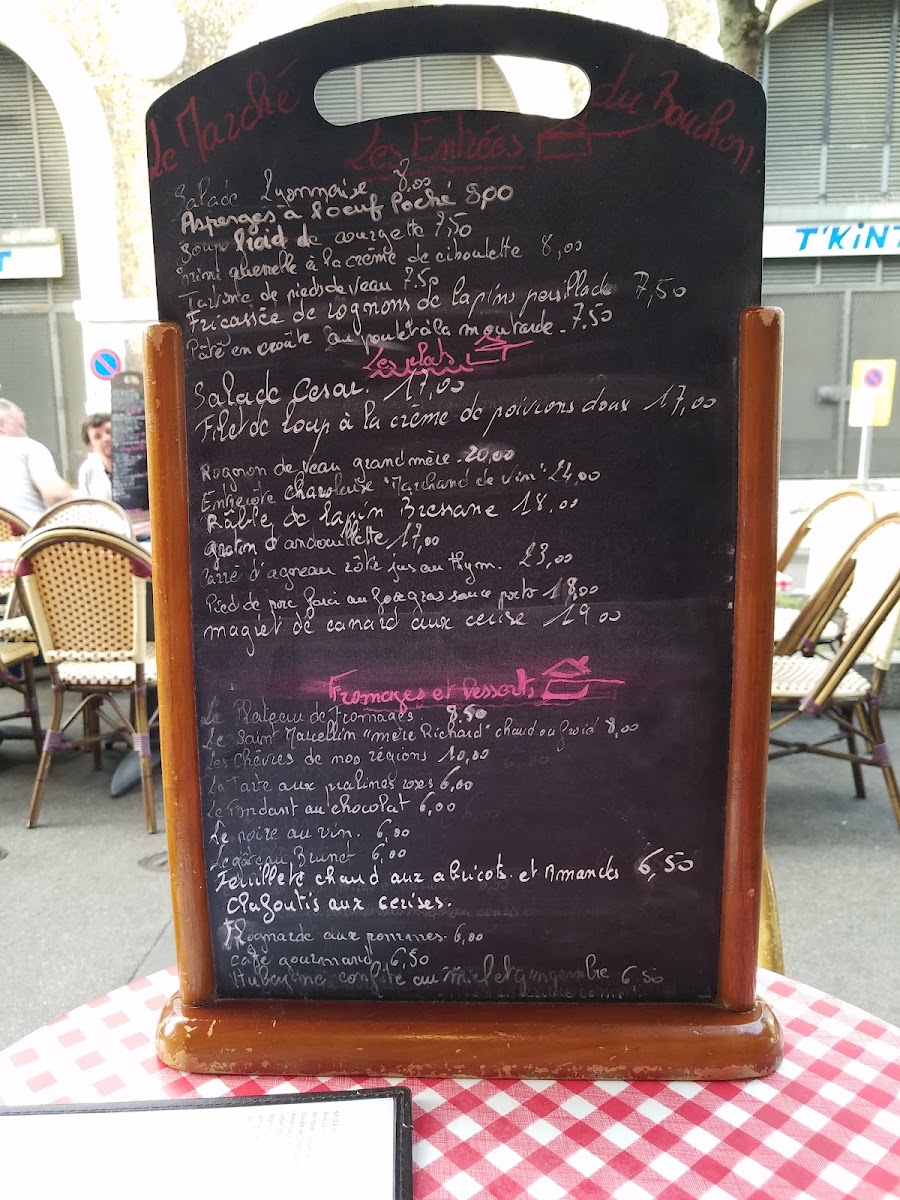 Le Marché du Bouchon
Les Entrées
Salade Lyonnaise 8.00
Asperges à l'oeuf Poché 8,00
Soup froid de courgette 7,50
mini quenelle à la crème de ciboulette 8,00
Terrine de pieds de veau 7.50
Fricassée de rognons de lapins persillade 7,50
Pâté en croûte au poulet à la moutarde - 7.50
Les plats
Salade Cesar. 17,00
Filet de loup à la crème de poivrons doux 17,00
Rognon de veau grand mère - 20,00
Entrecôte charolaise "Marchand de Vin" 24,00
Râble de lapin Bressane 18,00
gratin d'andouillette 17,00
Carré d'agneau rôti jus au thym. 23,00
Pied de porc farci au foie gras sauce porto 18,00
magret de canard aux cerise 19,00
Fromages et Desserts
Le Plateau de Fromages 8.50
Le Saint Marcellin "mère Richard" chaud ou froid 8,00
Les chèvres de nos régions 10,00
La Tarte aux pralines roses 6,00
Le Fondant au chocolat 6,00
La poire au vin. 6,00
Le gâteau Brunet 6,00
Feuilleté chaud aux abricots et Amandes 6,50
Clafoutis aux cerises.
Flognarde aux pommes - 6,00
café gourmand 6,50
confite au miel et gingembre 6,50
T'KiNT
T